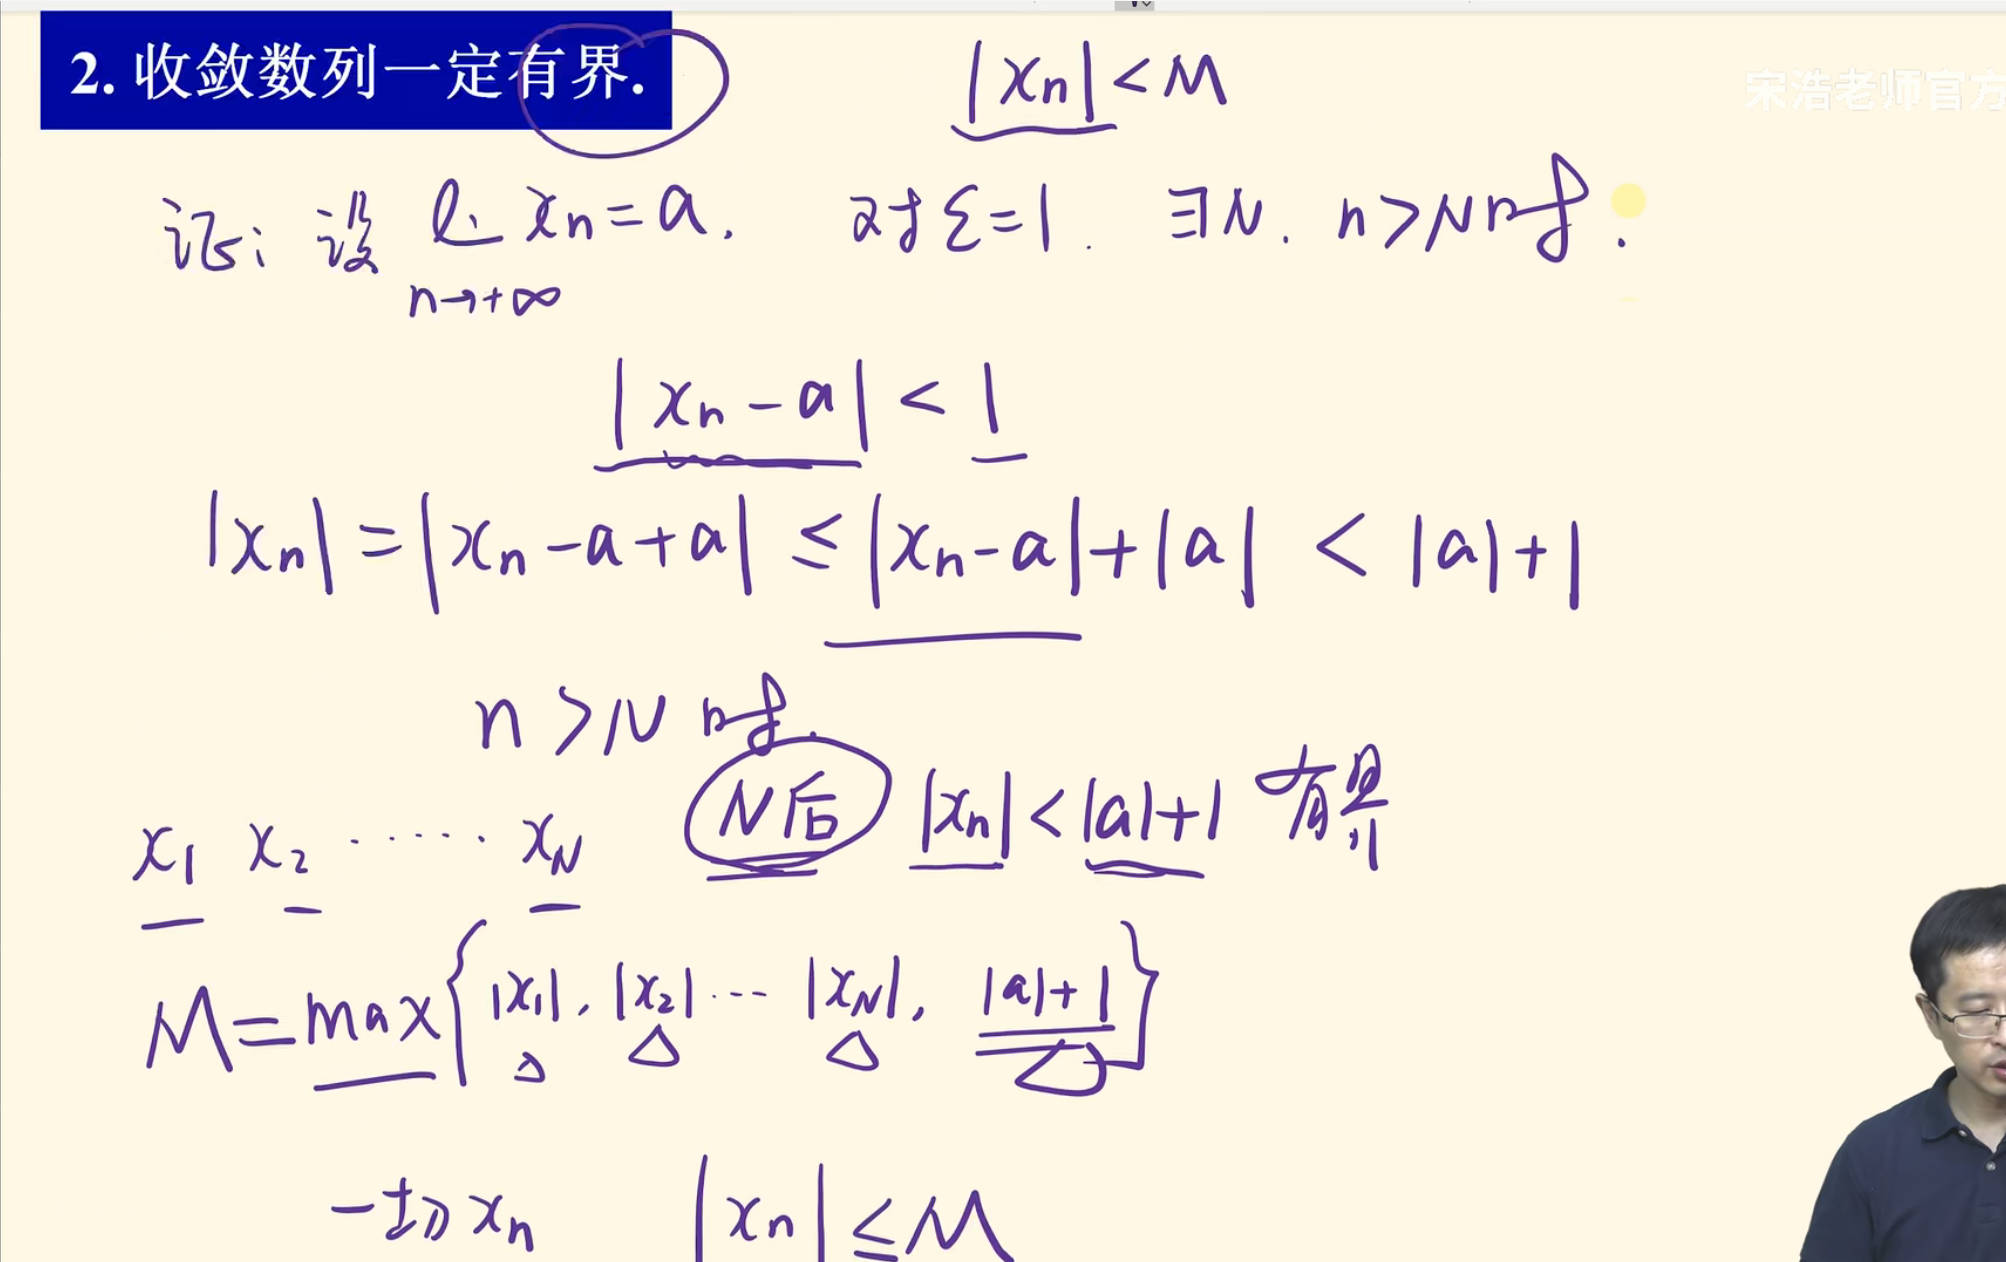 2. 收敛数列一定有界.
|xn| < M
宋浩老师官方
证: 设 lim xn = a. 对 ε = 1. ∃N. n > N 时:
n→+∞
|xn - a| < 1
|xn| = |xn - a + a| ≤ |xn - a| + |a| < |a| + 1
n > N 时.
x1 x2 ...... xN N后 |xn| < |a| + 1 有界
M = max{|x1|, |x2| ... |xN|, |a| + 1}
一切 xn |xn| ≤ M